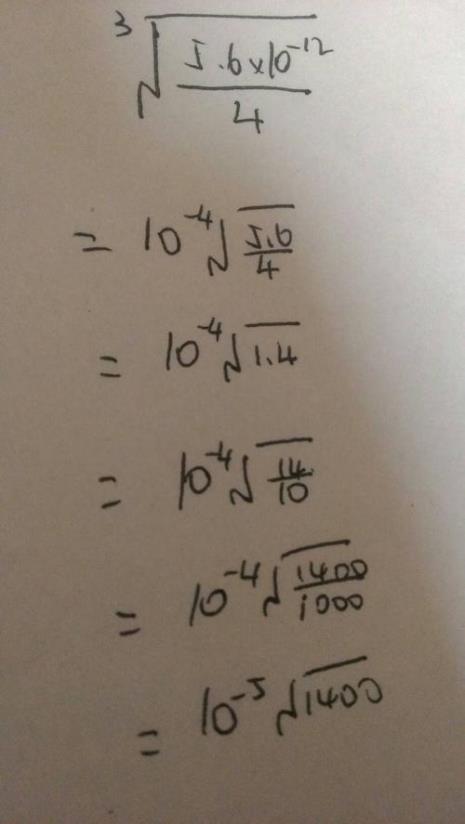 ∛(5.6×10⁻¹² / 4)
= 10⁻⁴ √(5.6 / 4)
= 10⁻⁴ √1.4
= 10⁻⁴ √(14 / 10)
= 10⁻⁴ √(1400 / 1000)
= 10⁻⁵ √1400